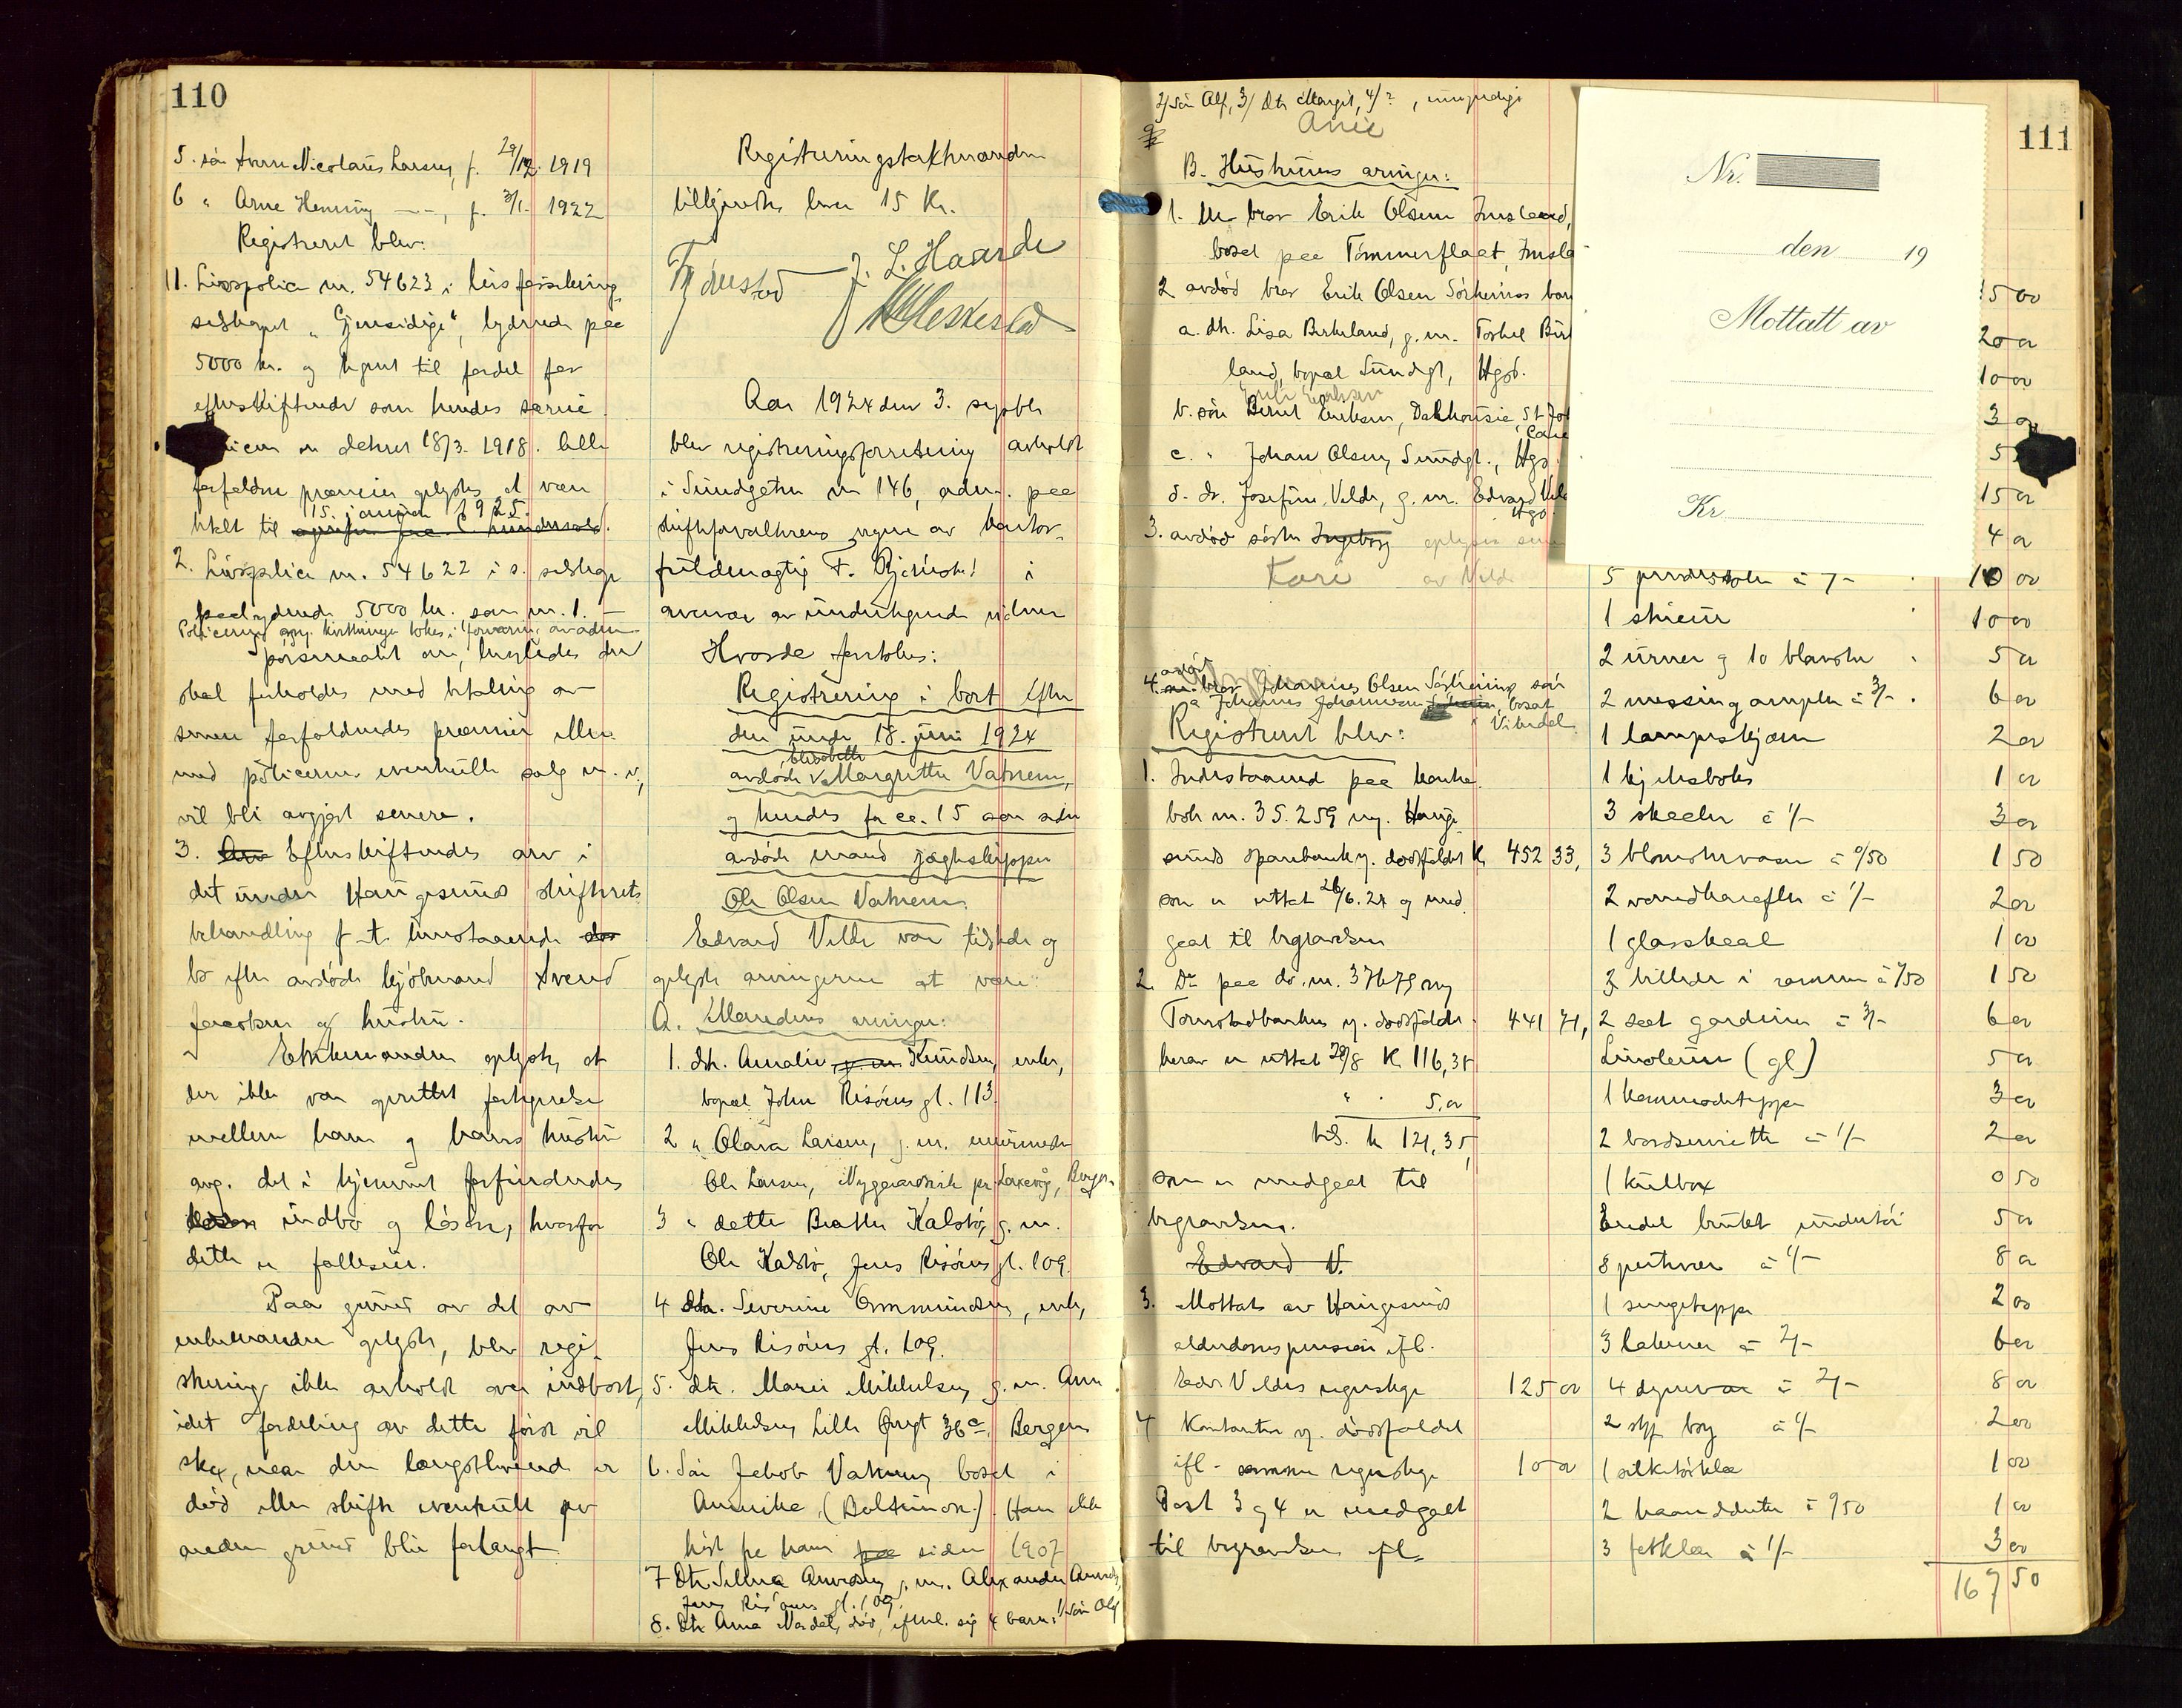 110
5. sön Sverre Nicolaus Larsen, f. 29/12. 1919
6 " Arne Henning — " —, f. 3/1. 1922
Registrert blev:
1. Livspolice nr. 54623 i livsforsikrings
selskapet "Gjensidige", lydende paa
5000 kr. og tegnet til fordel for
efterskiftende som hendes særeie.
er datert 18/3. 1918. Alle
forfaldne præmier oplystes at være
15. januar 1925.
betalt til
2. Livspolice nr. 54622 i s. selskap
paalydende 5000 kr. som nr. 1. —
Policerne
spörsmaalet om, hvorledes der
skal forholdes med betaling av
senere forfaldende præmier eller
med policerne eventuelle salg m. v.,
vil bli avgjort senere.
3. Arv Efterskiftendes arv i
det under Haugesunds skifterets
behandling f. t. henstaaende
bo efter avdöde kjöbmand Svend
Jacobsen og hustru.
Enkemanden oplyste, at
der ikke var oprettet
mellem ham og hans hustru
ang. det i hjemmet forfindendes
indbo og lösöre, hvorfor
dette er fælleseie.
Paa grund av det av
enkemanden oplyste, blev regi-
strering ikke avholdt over indboet,
idet fordeling av dette först vil
ske, naar den længstlevende er
död eller skifte eventuelt av
anden grund blir forlangt.
Registreringstakstmændene
tillegnedes hver 15 Kr.
J. L. Haarde
Aar 1924 den 3. septbr
blev registreringsforretning avholdt
i Sundgaten nr 146, adm. paa
skifteforvalterens vegne av kontor-
fuldmægtig F. i
overvær av undertegnede vidner
Hvorda foretokes:
Registrering i boet efter
den under 18. juni 1924
Elisabeth
avdöde Margrethe Vatnem,
og hendes for ca. 15 aar siden
avdöde mand jægtskipper
Ole Olsen Vatnem.
Edvard Velde var tilstede og
oplyste arvingerne at være:
A. Mandens arvinger:
1. dtr. Amalie g. m. Knudsen, enke,
bopæl John Risöens gt. 113.
2 " Olava Larsen, g. m.
Ole Larsen, Nygaardsvik pr Laxevåg, Bergen
3 " dette Beathe Kalstö, g. m.
Ole Kalstö, Jens Risöens gt. 109.
4 dtr. Severine Ommundsen, enke,
Jens Risöens gt. 109.
5. dtr. Marie Mikkelsen, g. m. Arne
Mikkelsen, Lille 36 c, Bergen
6. Sön Jakob Vatnem, bosat i
Amerika, (Baltimore). Har ikke
hört fra ham paa siden 1907
7 dtr Selma g. m. Alexander
Jens Risöens gt. 109.
8. dtr Anna Nordal, död, efterl. sig 4 barn: 1/ sön Olaf
2/ sön Alf, 3/ dtr Margit, 4/ ? , umyndige
Arne
111
B. Hustruens arvinger:
1. bror Erik Olsen Imsland,
bosat paa Tömmerflaat, Imsla
2 avdöd bror Erik Olsen Sörheims barn
a. dtr. Lisa Birkeland, g. m. Torkel Birk
land, bopæl Sundgt., Hgsd.
b. sön Bernt Eriksen, Dalhousie, St Jo
c. " Johan Olsen, Sundgt., Hgs.
d. dr. Josefine Velde, g. m. Edvard Vel
Hgs.
3. avdöd söster Ingeborg oplyses sene
Kari av Velde
avdöd
4. bror Johannes Olsen Sörheims, sön
a Johannes Johannesen, bosat
i Vikedal.
Registrert blev:
1. Indestaaende paa kontra
bok nr. 35.259 m. Hauge
sund Sparebank v. dödsfaldet K 452 33,
som er uttat 26/6.24 og med
gaat til begravelsen
2. Do paa do. nr. 37679 m
Torvestadbanken v. dödsfaldet 441 71,
herav er uttat 29/8 K 116,35
" . 5,00
tils. k 121,35
som er medgaat til
begravelsen.
Edvard V.
3. Mottat av Haugesunds
alderdomspension ifl.
Edv Veldes regnskap 125 00
4 Kontanter v. dödsfaldet
ifl. samme regnskap 10 00
Post 3 og 4 er medgaat
til begravelsen ifl.
Nr.
den 19
Mottatt av
Kr
15 00
20 00
10 00
3 00
5
15 00
4 00
5 pindestoler à 2/- 10 00
1 skrein 10 00
2 urner og 10 blomster 5 00
2 messing amper à 3/- . 6 00
1 lampeskjærm 2 00
1 1 00
3 skaaler à 1/- 3 00
3 blomstervaser à 0/50 1 50
2 vandkarafler à 1/- 2 00
1 glasskaal 1 00
3 billeder i rammer à 0/50 1 50
2 sæt gardiner à 3/- 6 00
Linoleum (gl) 5 00
1 kommodeteppe 3 00
2 bordservietter à 1/- 2 00
1 kulbox 0 50
Endel brukt undertöi 5 00
8 putevar à 1/- 8 00
1 sengeteppe 2 00
3 lakener à 2/- 6 00
4 dynevar à 2/- 8 00
2 à 1/- 2 00
1 silketörklæ 1 00
2 haandduker à 0/50 1 00
3 à 1/- 3 00
167 50